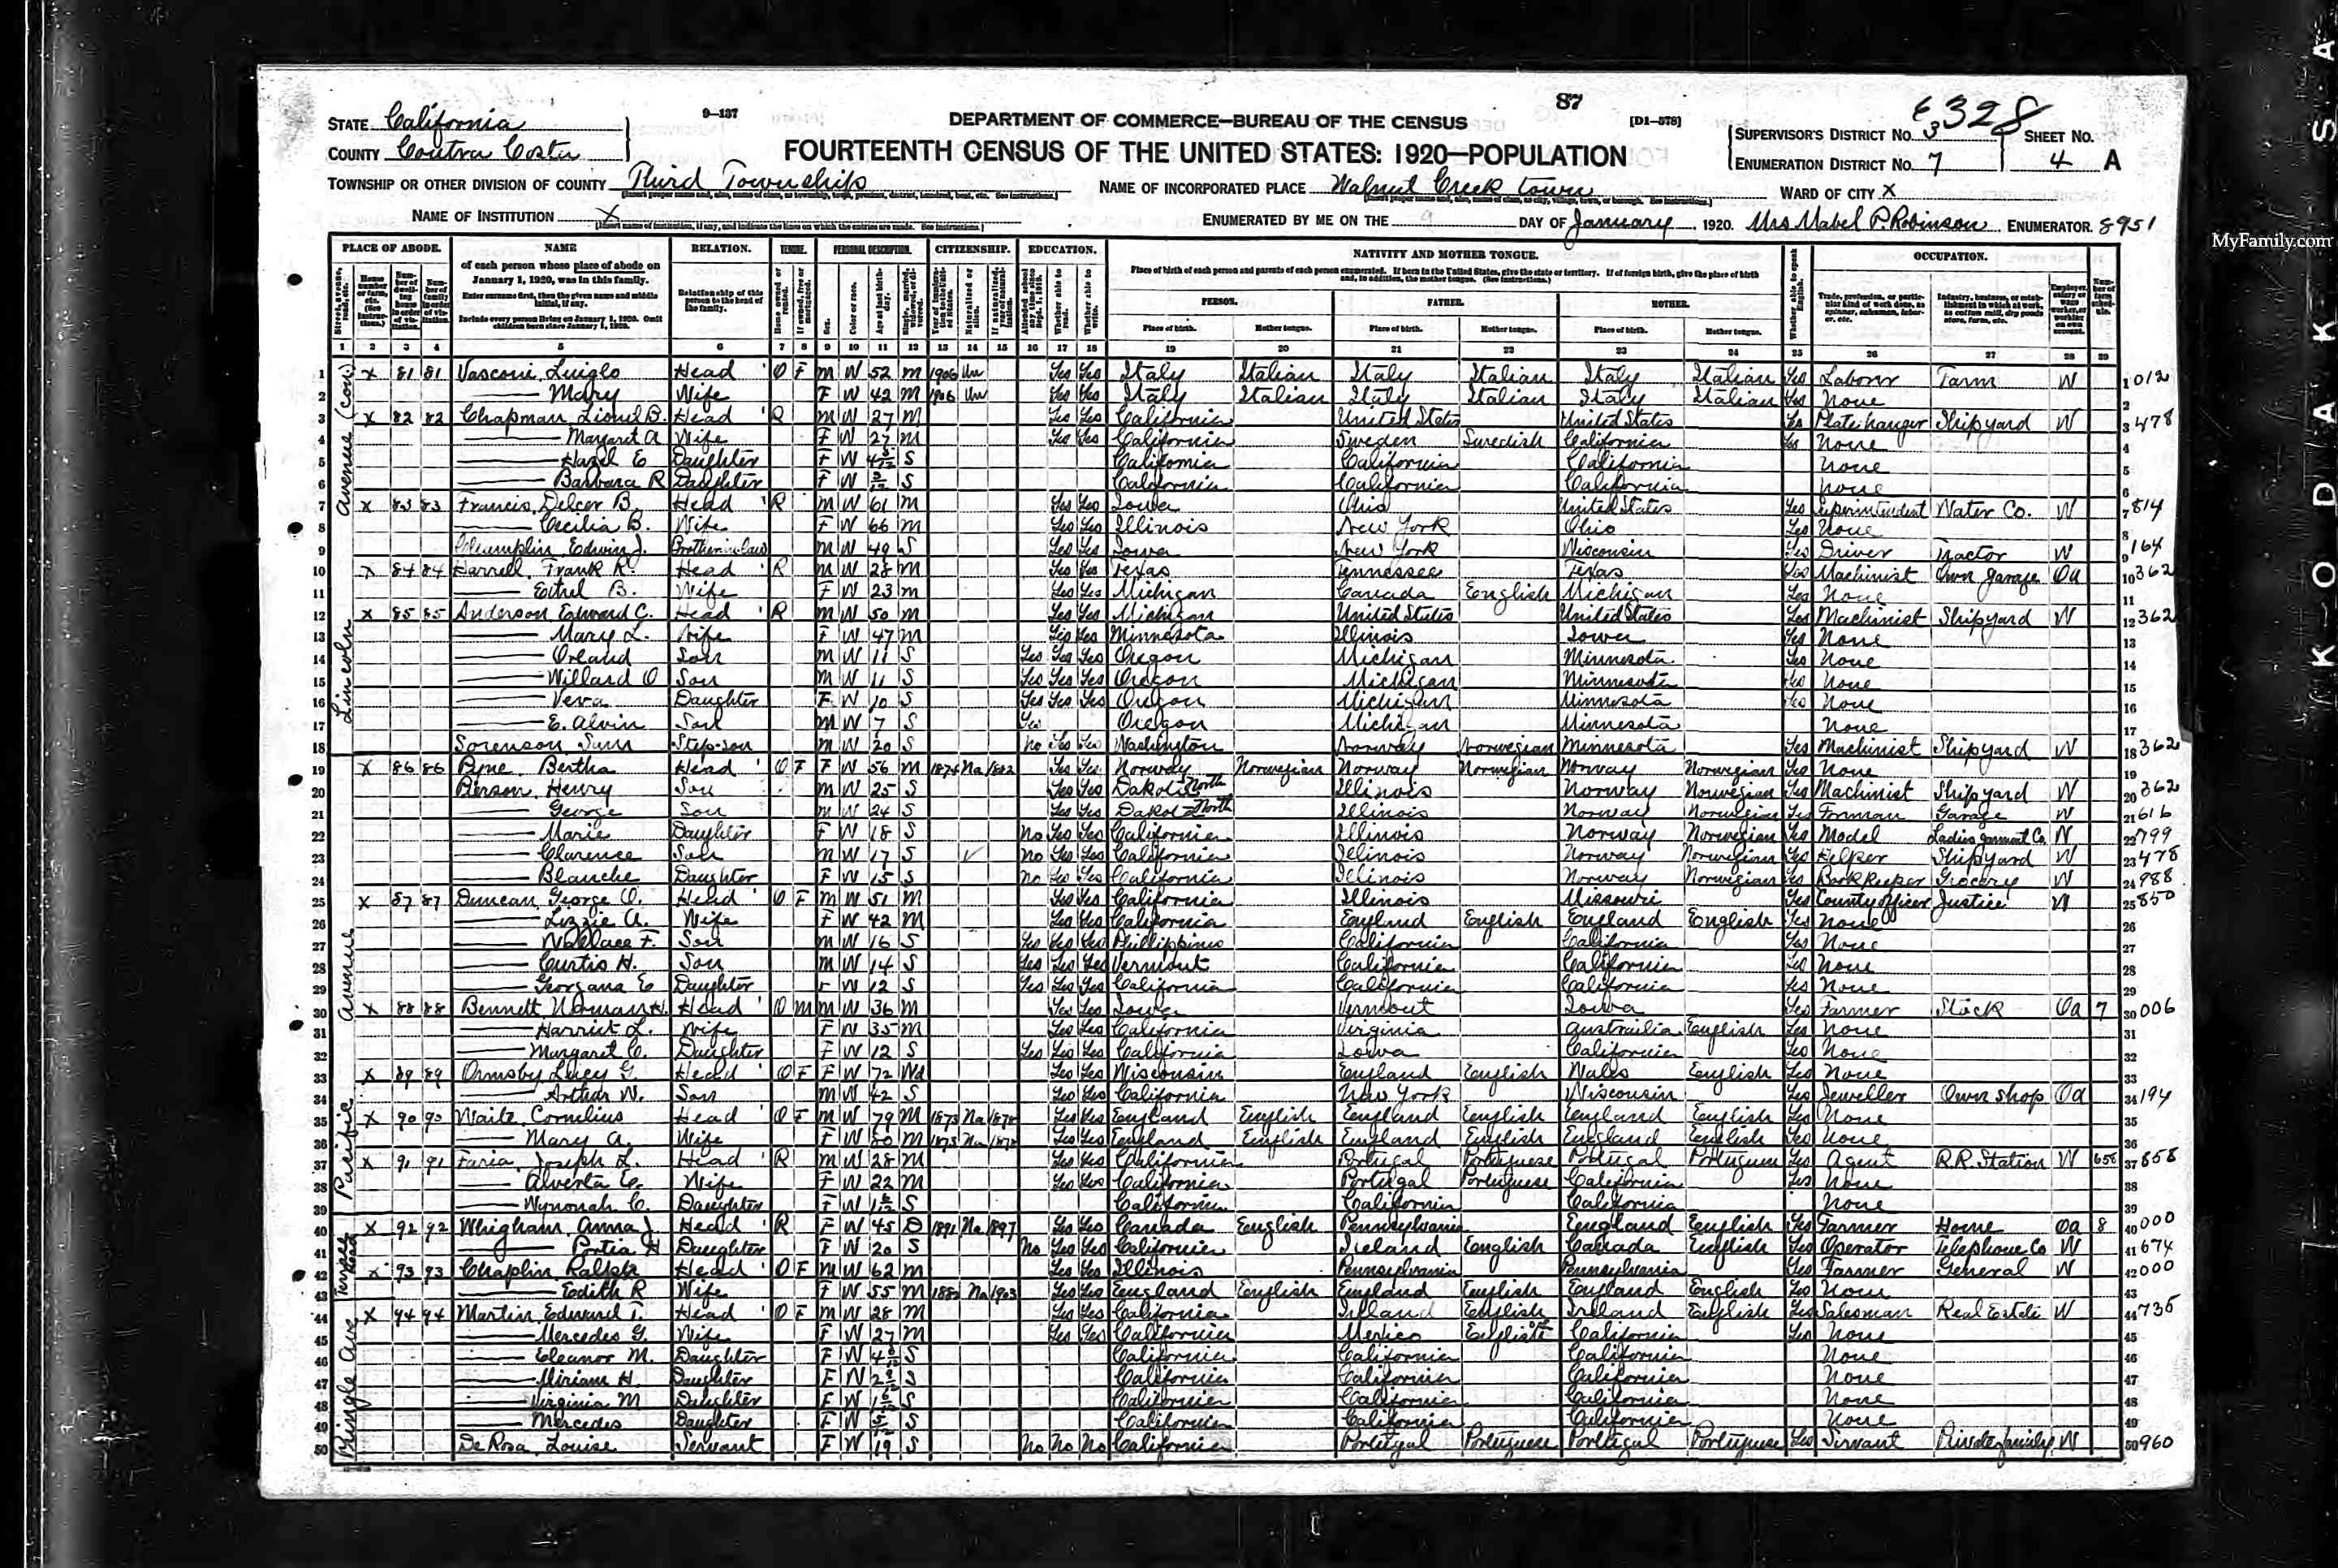 87
6328
STATE California
9—137
DEPARTMENT OF COMMERCE—BUREAU OF THE CENSUS
[D1-578]
SUPERVISOR'S DISTRICT No. 3 SHEET No.
COUNTY Contra Costa
FOURTEENTH CENSUS OF THE UNITED STATES: 1920—POPULATION
ENUMERATION DISTRICT No. 7 4 A
TOWNSHIP OR OTHER DIVISION OF COUNTY Third Township
NAME OF INCORPORATED PLACE Walnut Creek town
WARD OF CITY X
NAME OF INSTITUTION X
ENUMERATED BY ME ON THE 9 DAY OF January, 1920. Mrs Mabel P. Robinson ENUMERATOR. 8951
MyFamily.com
PLACE OF ABODE. NAME RELATION. TENURE. PERSONAL DESCRIPTION. CITIZENSHIP. EDUCATION. NATIVITY AND MOTHER TONGUE. OCCUPATION.
of each person whose place of abode on January 1, 1920, was in this family.
Enter surname first, then the given name and middle initial, if any.
Include every person living on January 1, 1920. Omit children born since January 1, 1920.
Relationship of this person to the head of the family.
Place of birth of each person and parents of each person enumerated. If born in the United States, give the state or territory. If of foreign birth, give the place of birth and, in addition, the mother tongue. (See Instructions.)
PERSON. FATHER. MOTHER.
Place of birth. Mother tongue. Place of birth. Mother tongue. Place of birth. Mother tongue.
1 2 3 4 5 6 7 8 9 10 11 12 13 14 15 16 17 18 19 20 21 22 23 24 25 26 27 28 29
1 X 81 81 Head O F M W 52 M 1906 Un Yes Yes Italy Italian Italy Italian Italy Italian Yes Laborer Farm W 1 012
2 Mary Wife F W 42 M 1906 Un Yes Yes Italy Italian Italy Italian Italy Italian Yes None 2
3 X 82 82 Chapman, Lionel B. Head R M W 27 M Yes Yes California United States United States Yes Plate hanger Shipyard W 3 478
4 Margaret A Wife F W 27 M Yes Yes California Sweden Swedish California Yes None 4
5 Hazel E Daughter F W S California California California None 5
6 Barbara R Daughter F W S California California California None 6
7 X 83 83 Francis, B. Head R M W 61 M Yes Yes Iowa Ohio United States Yes Superintendent Water Co. W 7 814
8 Cecilia B. Wife F W 66 M Yes Yes Illinois New York Ohio Yes None 8
9 Champlin, Edwin J. Brother in law M W 49 S Yes Yes Iowa New York Wisconsin Yes Driver Tractor W 9 164
10 X 84 84 Harrell, Frank R. Head R M W 28 M Yes Yes Texas Tennessee Texas Yes Machinist Own garage Oa 10 362
11 Ethel B. Wife F W 23 M Yes Yes Michigan Canada English Michigan Yes None 11
12 X 85 85 Anderson, Edward C. Head R M W 50 M Yes Yes Michigan United States United States Yes Machinist Shipyard W 12 362
13 Mary L. Wife F W 47 M Yes Yes Minnesota Illinois Iowa Yes None 13
14 Orland Son M W 11 S Yes Yes Yes Oregon Michigan Minnesota Yes None 14
15 Willard O Son M W 11 S Yes Yes Yes Oregon Michigan Minnesota Yes None 15
16 Veva Daughter F W 10 S Yes Yes Yes Oregon Michigan Minnesota Yes None 16
17 E. Alvin Son M W 7 S Yes Oregon Michigan Minnesota None 17
18 Sorenson, Step-son M W 20 S No Yes Yes Washington Norway Norwegian Minnesota Yes Machinist Shipyard W 18 362
19 X 86 86 Pyne, Bertha Head O F F W 56 M 1874 Na 1882 Yes Yes Norway Norwegian Norway Norwegian Norway Norwegian Yes None 19
20 Pierson, Henry Son M W 25 S Yes Yes Dakota North Illinois Norway Norwegian Yes Machinist Shipyard W 20 362
21 George Son M W 24 S Yes Yes Dakota North Illinois Norway Norwegian Yes Forman Garage W 21 616
22 Marie Daughter F W 18 S No Yes Yes California Illinois Norway Norwegian Yes Model Ladies garment Co. W 22 799
23 Clarence Son M W 17 S No Yes Yes California Illinois Norway Norwegian Yes Helper Shipyard W 23 478
24 Blanche Daughter F W 15 S No Yes Yes California Illinois Norway Norwegian Yes Book Keeper Grocery W 24 988
25 X 87 87 Duncan, George O. Head O F M W 51 M Yes Yes California Illinois Missouri Yes County officer Justice W 25 850
26 Lizzie A. Wife F W 42 M Yes Yes California England English England English Yes None 26
27 Wallace F. Son M W 16 S Yes Yes Yes Phillippines California California Yes None 27
28 Curtis H. Son M W 14 S Yes Yes Yes Vermont California California Yes None 28
29 Georgana E Daughter F W 12 S Yes Yes Yes California California California Yes None 29
30 X 88 88 Bennett, Norman H. Head O M M W 36 M Yes Yes Iowa Vermont Iowa Yes Farmer Stock Oa 7 30 006
31 Harriet L. Wife F W 35 M Yes Yes California Virginia Austrailia English Yes None 31
32 Margaret C. Daughter F W 12 S Yes Yes Yes California Iowa California Yes None 32
33 X 89 89 Ormsby, Lucy G. Head O F F W 72 Wd Yes Yes Wisconsin England English Wales English Yes None 33
34 Arthur W. Son M W 42 S Yes Yes California New York Wisconsin Yes Jeweller Own shop Oa 34 194
35 X 90 90 Waite, Cornelius Head O F M W 79 M 1873 Na 1878 Yes Yes England English England English England English Yes None 35
36 Mary A. Wife F W 80 M 1873 Na 1878 Yes Yes England English England English England English Yes None 36
37 X 91 91 Faria, Joseph L. Head R M W 28 M Yes Yes California Portugal Portuguese Portugal Portuguese Yes Agent R.R. Station W 658 37 858
38 Alverta C. Wife F W 22 M Yes Yes California Portugal Portuguese California Yes None 38
39 Wynonah C. Daughter F W S California California California None 39
40 X 92 92 Whigham, Anna J Head R F W 45 D 1891 Na 1897 Yes Yes Canada English Pennsylvania England English Yes Farmer Home Oa 8 40 000
41 Portia H Daughter F W 20 S No Yes Yes California Ireland English Canada English Yes Operator Telephone Co W 41 674
42 X 93 93 Chaplin, Head O F M W 62 M Yes Yes Illinois Pennsylvania Pennsylvania Yes Farmer General W 42 000
43 Edith R Wife F W 55 M 1882 Na 1903 Yes Yes England English England English England English Yes None 43
44 X 94 94 Martin, Edward T. Head O F M W 28 M Yes Yes California Ireland English Ireland English Yes Salesman Real Estate W 44 735
45 Mercedes G. Wife F W 27 M Yes Yes California Mexico California Yes None 45
46 Eleanor M. Daughter F W S California California California None 46
47 Miriam H. Daughter F W S California California California None 47
48 Virginia M Daughter F W S California California California None 48
49 Mercedes Daughter F W S California California California None 49
50 De Rosa, Louise Servant F W 19 S No No No California Portugal Portuguese Portugal Portuguese Yes Servant Private family W 50 960
Lincoln Avenue (con)
Pacific Avenue
Bungle Ave
KODAK SA